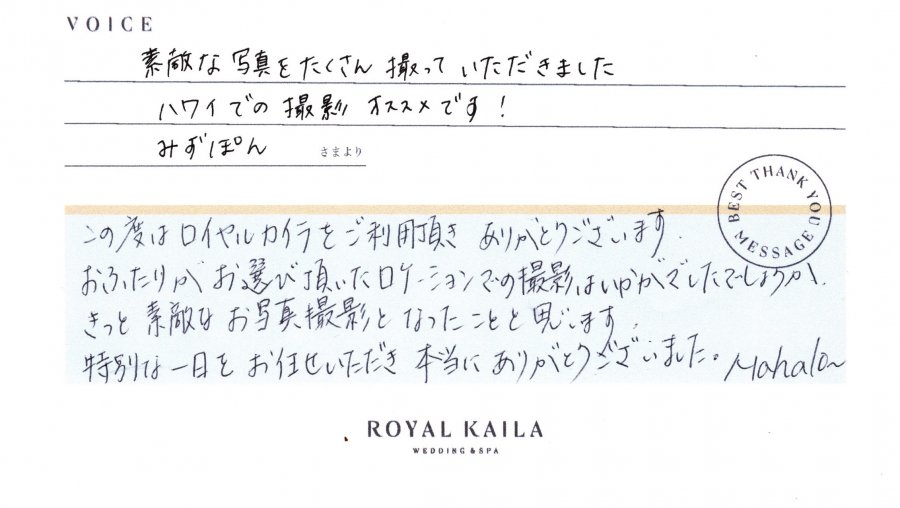 VOICE
素敵な写真をたくさん撮っていただきました
ハワイでの撮影オススメです!
みずぽん さまより
BEST THANK YOU MESSAGE
この度はロイヤルカイラをご利用頂きありがとうございます.
おふたりがお選び頂いたロケーションでの撮影はいかがでしたでしょうか.
きっと素敵なお写真撮影となったことと思います.
特別な一日をお任せいただき本当にありがとうございました。Mahalo~
ROYAL KAILA
WEDDING & SPA